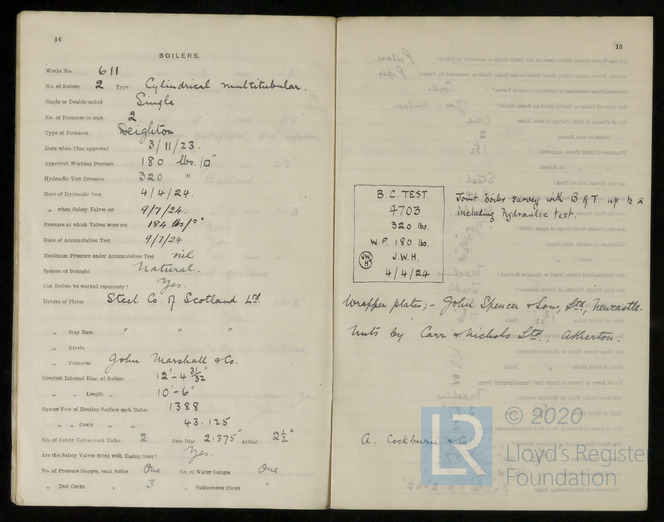 14
BOILERS.
Works No. 611
No. of Boilers 2 Type Cylindrical multitubular.
Single or Double-ended Single
No. of Furnaces in each 2
Type of Furnaces Deighton
Date when Plan approved 3/11/23.
Approved Working Pressure 180 lbs. /□"
Hydraulic Test Pressure 320 "
Date of Hydraulic Test 4/4/24.
" when Safety Valves set 9/7/24.
Pressure at which Valves were set 184 lbs/□"
Date of Accumulation Test 9/7/24.
Maximum Pressure under Accumulation Test nil
System of Draught Natural.
Can Boilers be worked separately? Yes.
Makers of Plates Steel Co. of Scotland Ltd.
" Stay Bars " " "
" Rivets
" Furnaces John Marshall & Co.
Greatest Internal Diam. of Boilers 12'-4 3/32"
" " Length " 10'-6"
Square Feet of Heating Surface each Boiler 1388
" " Grate " " 43.125
No. of Safety Valves each Boiler 2 Rule Diam. 2.375" Actual 2½"
Are the Safety Valves fitted with Easing Gear? Yes.
No. of Pressure Gauges, each Boiler One No. of Water Gauges One
" Test Cocks " 3 " Salinometer Cocks "
15
B.C. TEST.
4703
320 lbs.
W.P. 180 lbs.
J.W.H.
4/4/24
Joint boiler survey with B of T. up to &
including hydraulic test.
Wrapper plates;- John Spencer & Sons, Ltd, Newcastle.
Nuts by Carr & Nichols Ltd, Atherton.
A. Cockburn & Co
© 2020
LR
Lloyd's Register
Foundation